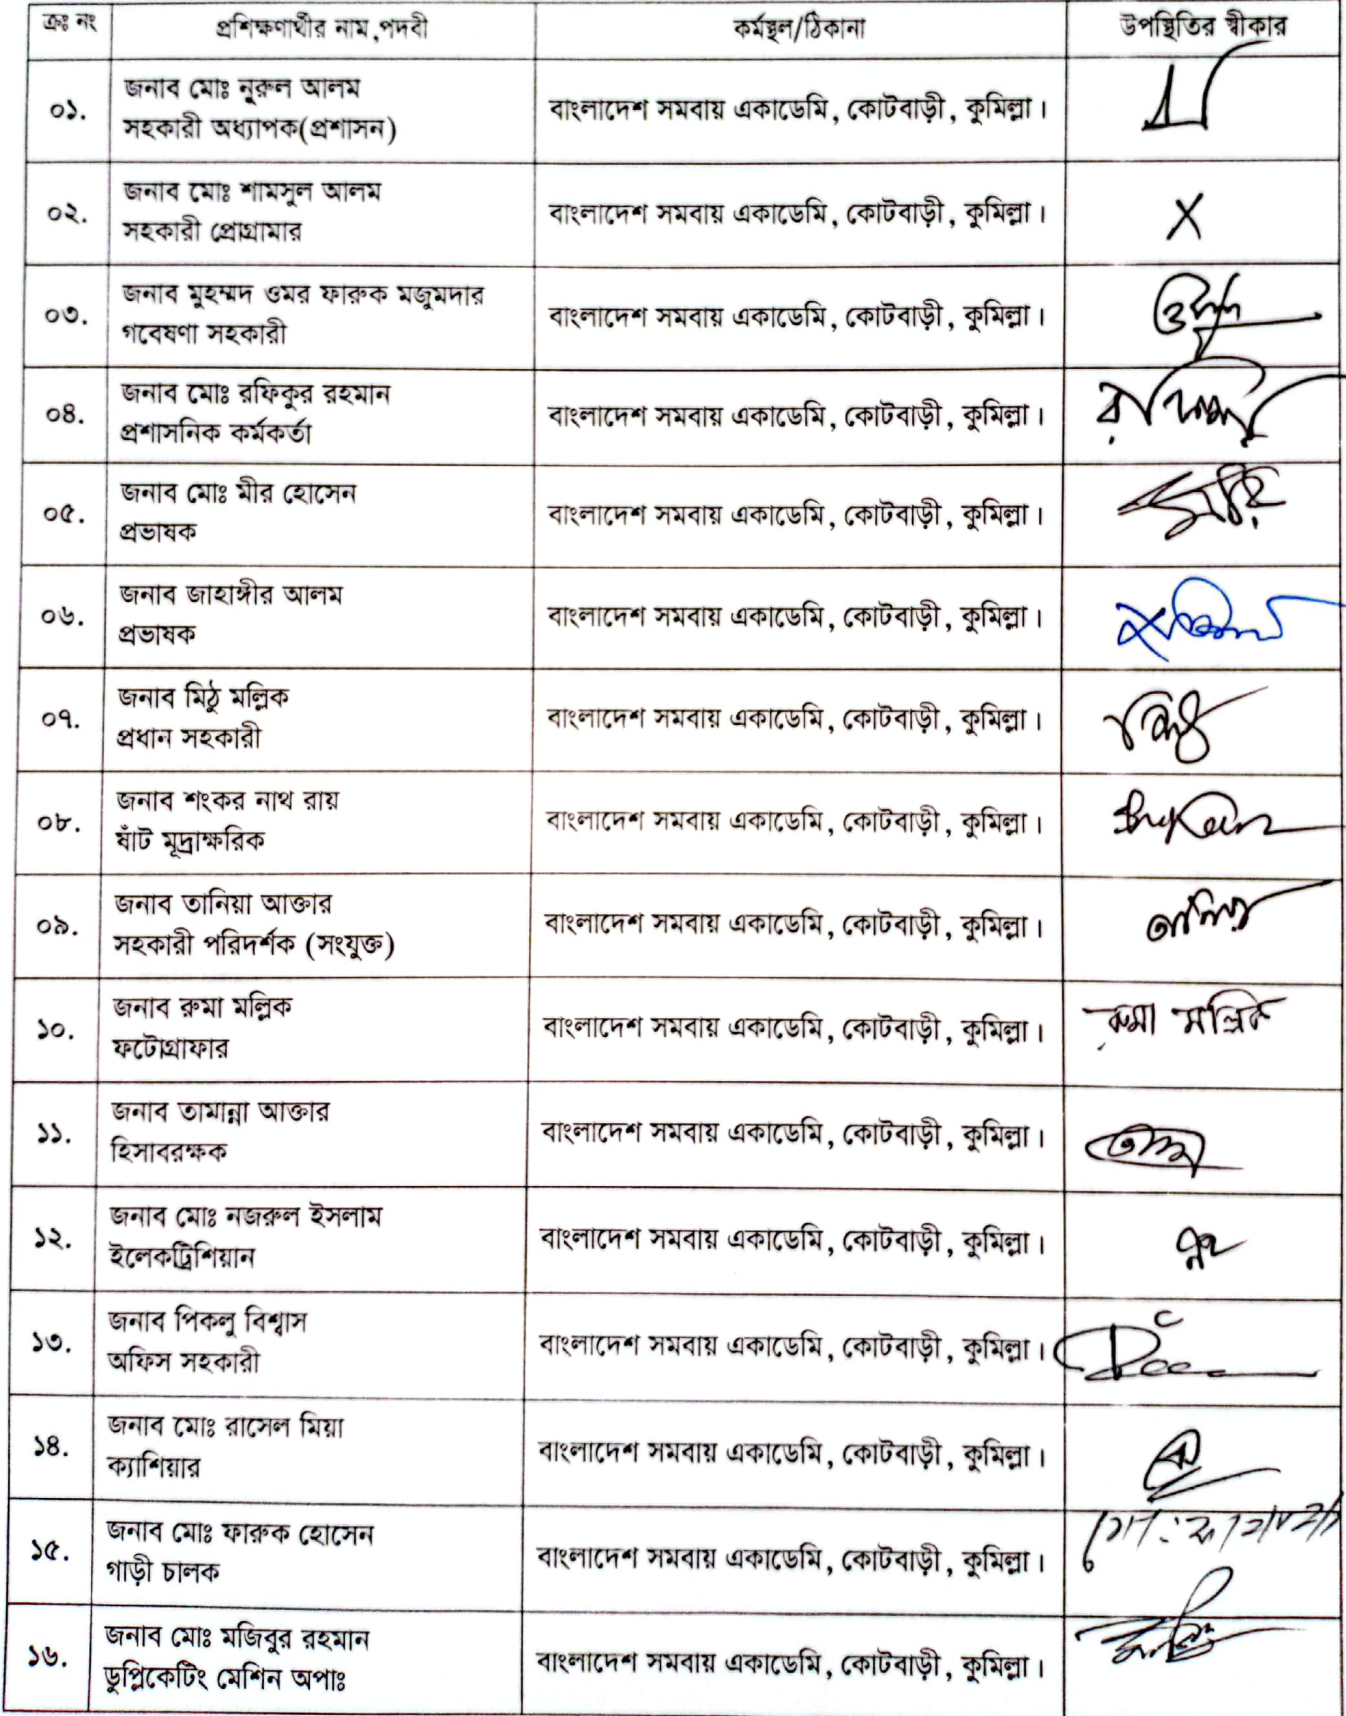 ক্রঃ নং প্রশিক্ষণার্থীর নাম,পদবী কর্মস্থল/ঠিকানা উপস্থিতির স্বীকার
০১. জনাব মোঃ নুরুল আলম
সহকারী অধ্যাপক(প্রশাসন) বাংলাদেশ সমবায় একাডেমি, কোটবাড়ী, কুমিল্লা।
০২. জনাব মোঃ শামসুল আলম
সহকারী প্রোগ্রামার বাংলাদেশ সমবায় একাডেমি, কোটবাড়ী, কুমিল্লা। X
০৩. জনাব মুহম্মদ ওমর ফারুক মজুমদার
গবেষণা সহকারী বাংলাদেশ সমবায় একাডেমি, কোটবাড়ী, কুমিল্লা।
০৪. জনাব মোঃ রফিকুর রহমান
প্রশাসনিক কর্মকর্তা বাংলাদেশ সমবায় একাডেমি, কোটবাড়ী, কুমিল্লা।
০৫. জনাব মোঃ মীর হোসেন
প্রভাষক বাংলাদেশ সমবায় একাডেমি, কোটবাড়ী, কুমিল্লা।
০৬. জনাব জাহাঙ্গীর আলম
প্রভাষক বাংলাদেশ সমবায় একাডেমি, কোটবাড়ী, কুমিল্লা।
০৭. জনাব মিঠু মল্লিক
প্রধান সহকারী বাংলাদেশ সমবায় একাডেমি, কোটবাড়ী, কুমিল্লা।
০৮. জনাব শংকর নাথ রায়
ষাঁট মূদ্রাক্ষরিক বাংলাদেশ সমবায় একাডেমি, কোটবাড়ী, কুমিল্লা।
০৯. জনাব তানিয়া আক্তার
সহকারী পরিদর্শক (সংযুক্ত) বাংলাদেশ সমবায় একাডেমি, কোটবাড়ী, কুমিল্লা।
১০. জনাব রুমা মল্লিক
ফটোগ্রাফার বাংলাদেশ সমবায় একাডেমি, কোটবাড়ী, কুমিল্লা। রুমা মল্লিক
১১. জনাব তামান্না আক্তার
হিসাবরক্ষক বাংলাদেশ সমবায় একাডেমি, কোটবাড়ী, কুমিল্লা।
১২. জনাব মোঃ নজরুল ইসলাম
ইলেকট্রিশিয়ান বাংলাদেশ সমবায় একাডেমি, কোটবাড়ী, কুমিল্লা।
১৩. জনাব পিকলু বিশ্বাস
অফিস সহকারী বাংলাদেশ সমবায় একাডেমি, কোটবাড়ী, কুমিল্লা।
১৪. জনাব মোঃ রাসেল মিয়া
ক্যাশিয়ার বাংলাদেশ সমবায় একাডেমি, কোটবাড়ী, কুমিল্লা।
১৫. জনাব মোঃ ফারুক হোসেন
গাড়ী চালক বাংলাদেশ সমবায় একাডেমি, কোটবাড়ী, কুমিল্লা।
১৬. জনাব মোঃ মজিবুর রহমান
ডুপ্লিকেটিং মেশিন অপাঃ বাংলাদেশ সমবায় একাডেমি, কোটবাড়ী, কুমিল্লা।